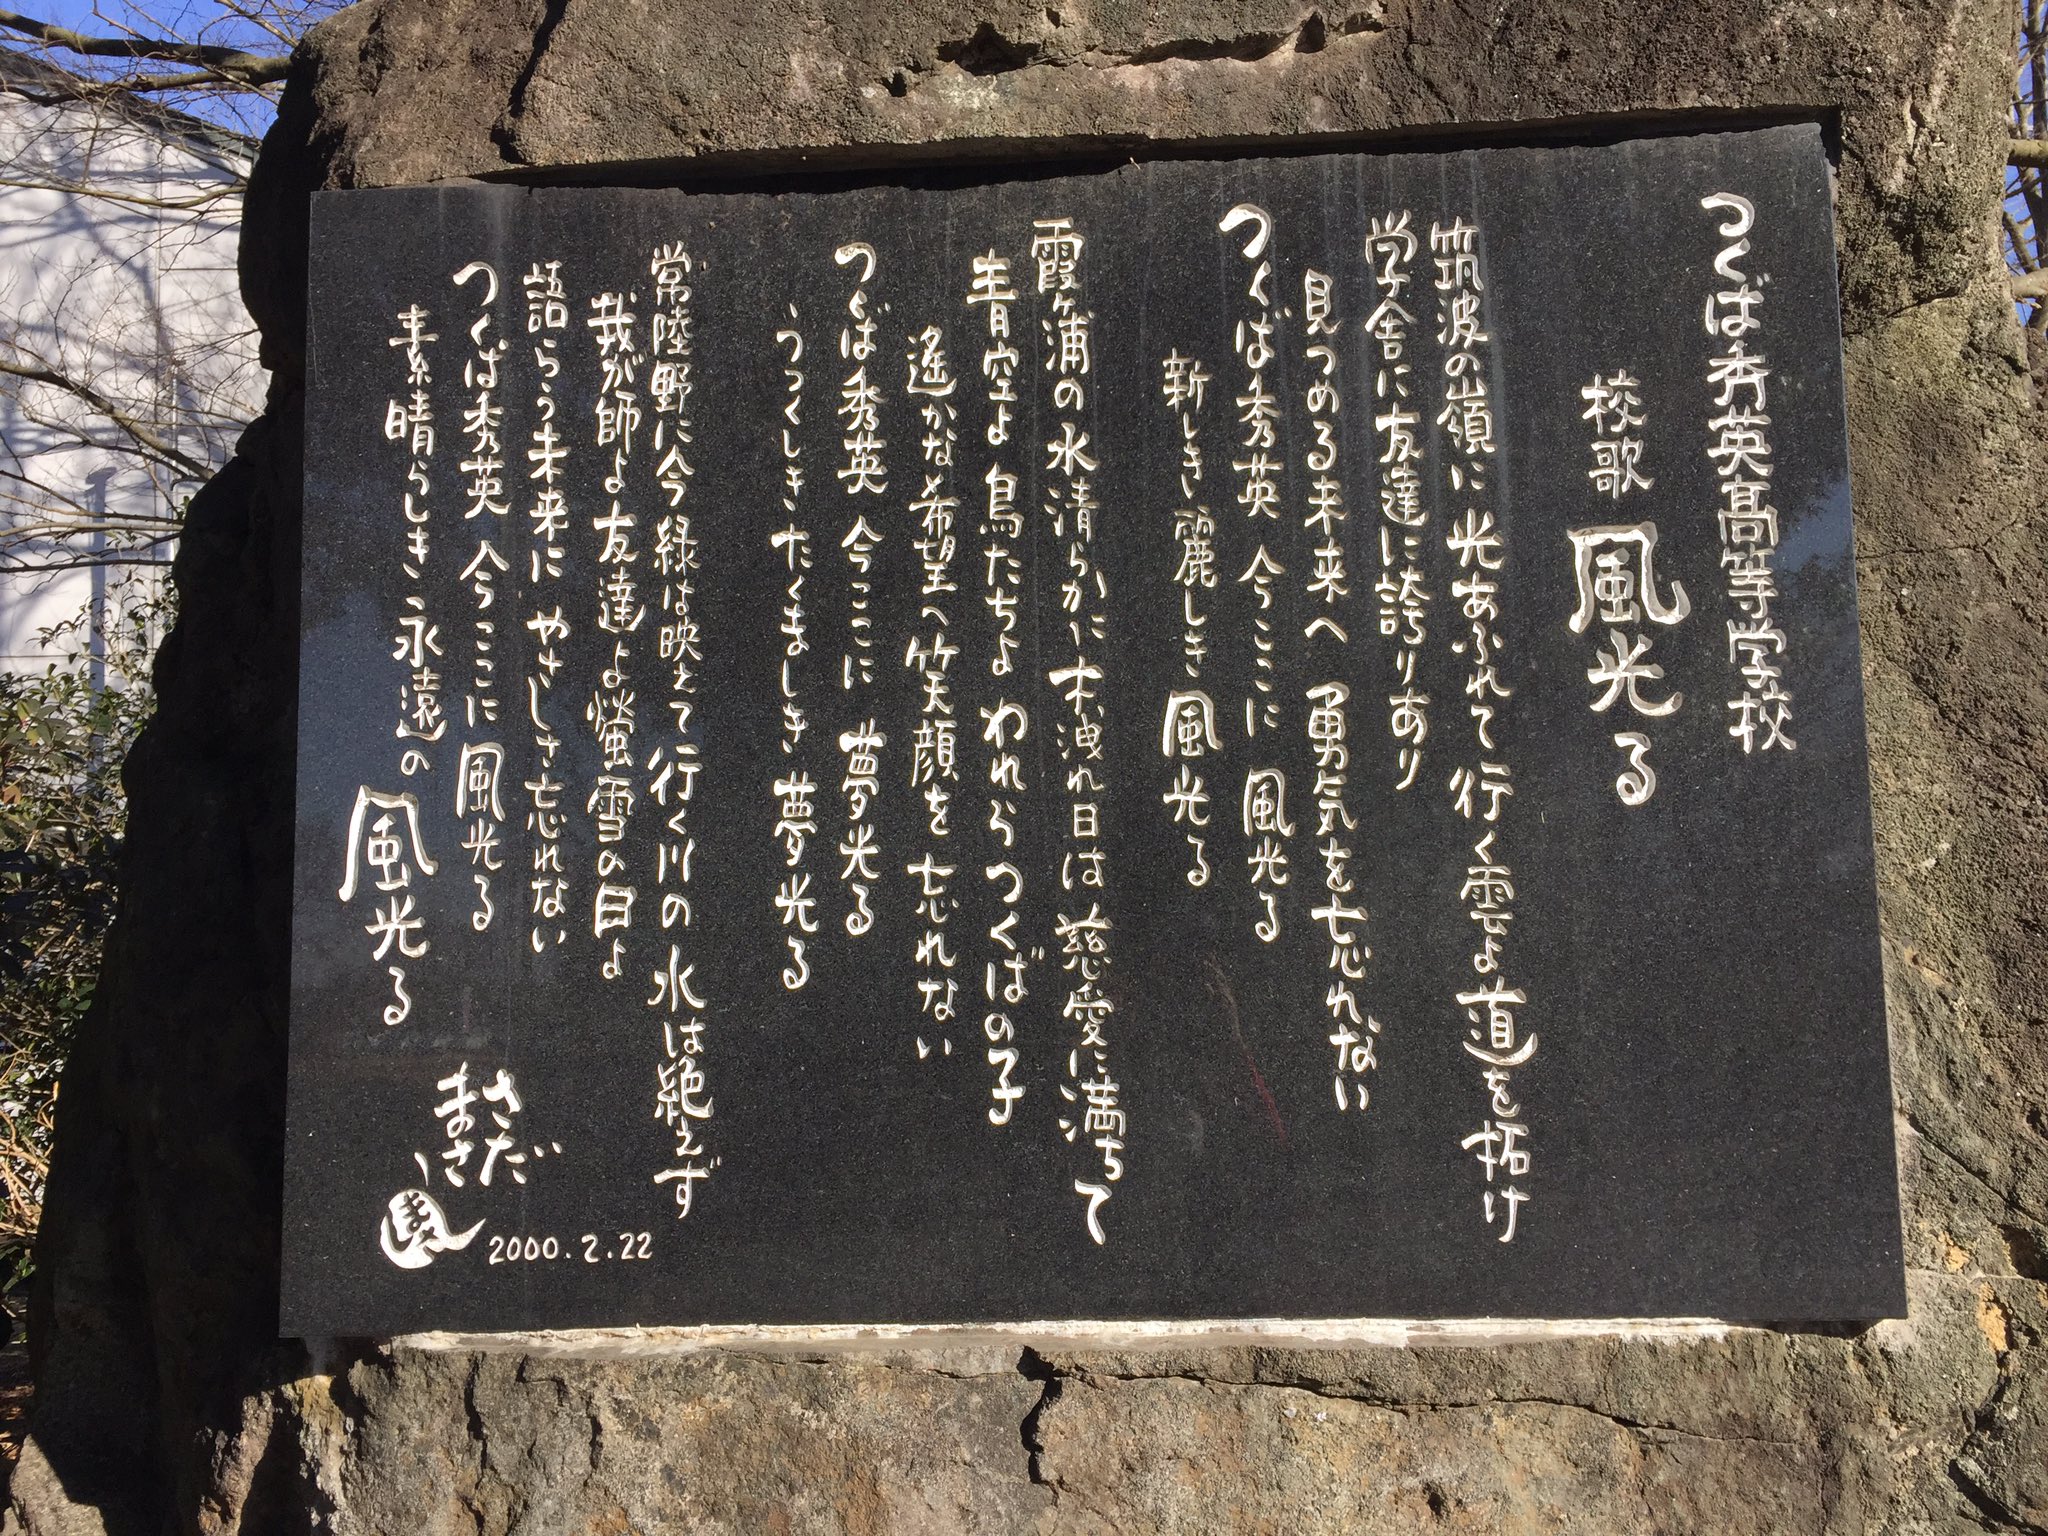 つくば秀英高等学校
校歌 風光る
筑波の嶺に 光あふれて 行く雲よ 道を拓け
学舎に 友達に 誇りあり
見つめる未来へ 勇気を忘れない
つくば秀英 今ここに 風光る
新しき 麗しき 風光る
霞ヶ浦の水清らかに 木洩れ日は 慈愛に満ちて
青空よ 鳥たちよ われら つくばの子
遙かな希望へ 笑顔を 忘れない
つくば秀英 今ここに 夢光る
うつくしき たくましき 夢光る
常陸野に今 緑は映えて 行く川の 水は絶えず
我が師よ 友達よ 螢雪の日よ
語らう未来に やさしさ忘れない
つくば秀英 今ここに 風光る
素晴らしき 永遠の 風光る
さだ
まさし
2000.2.22